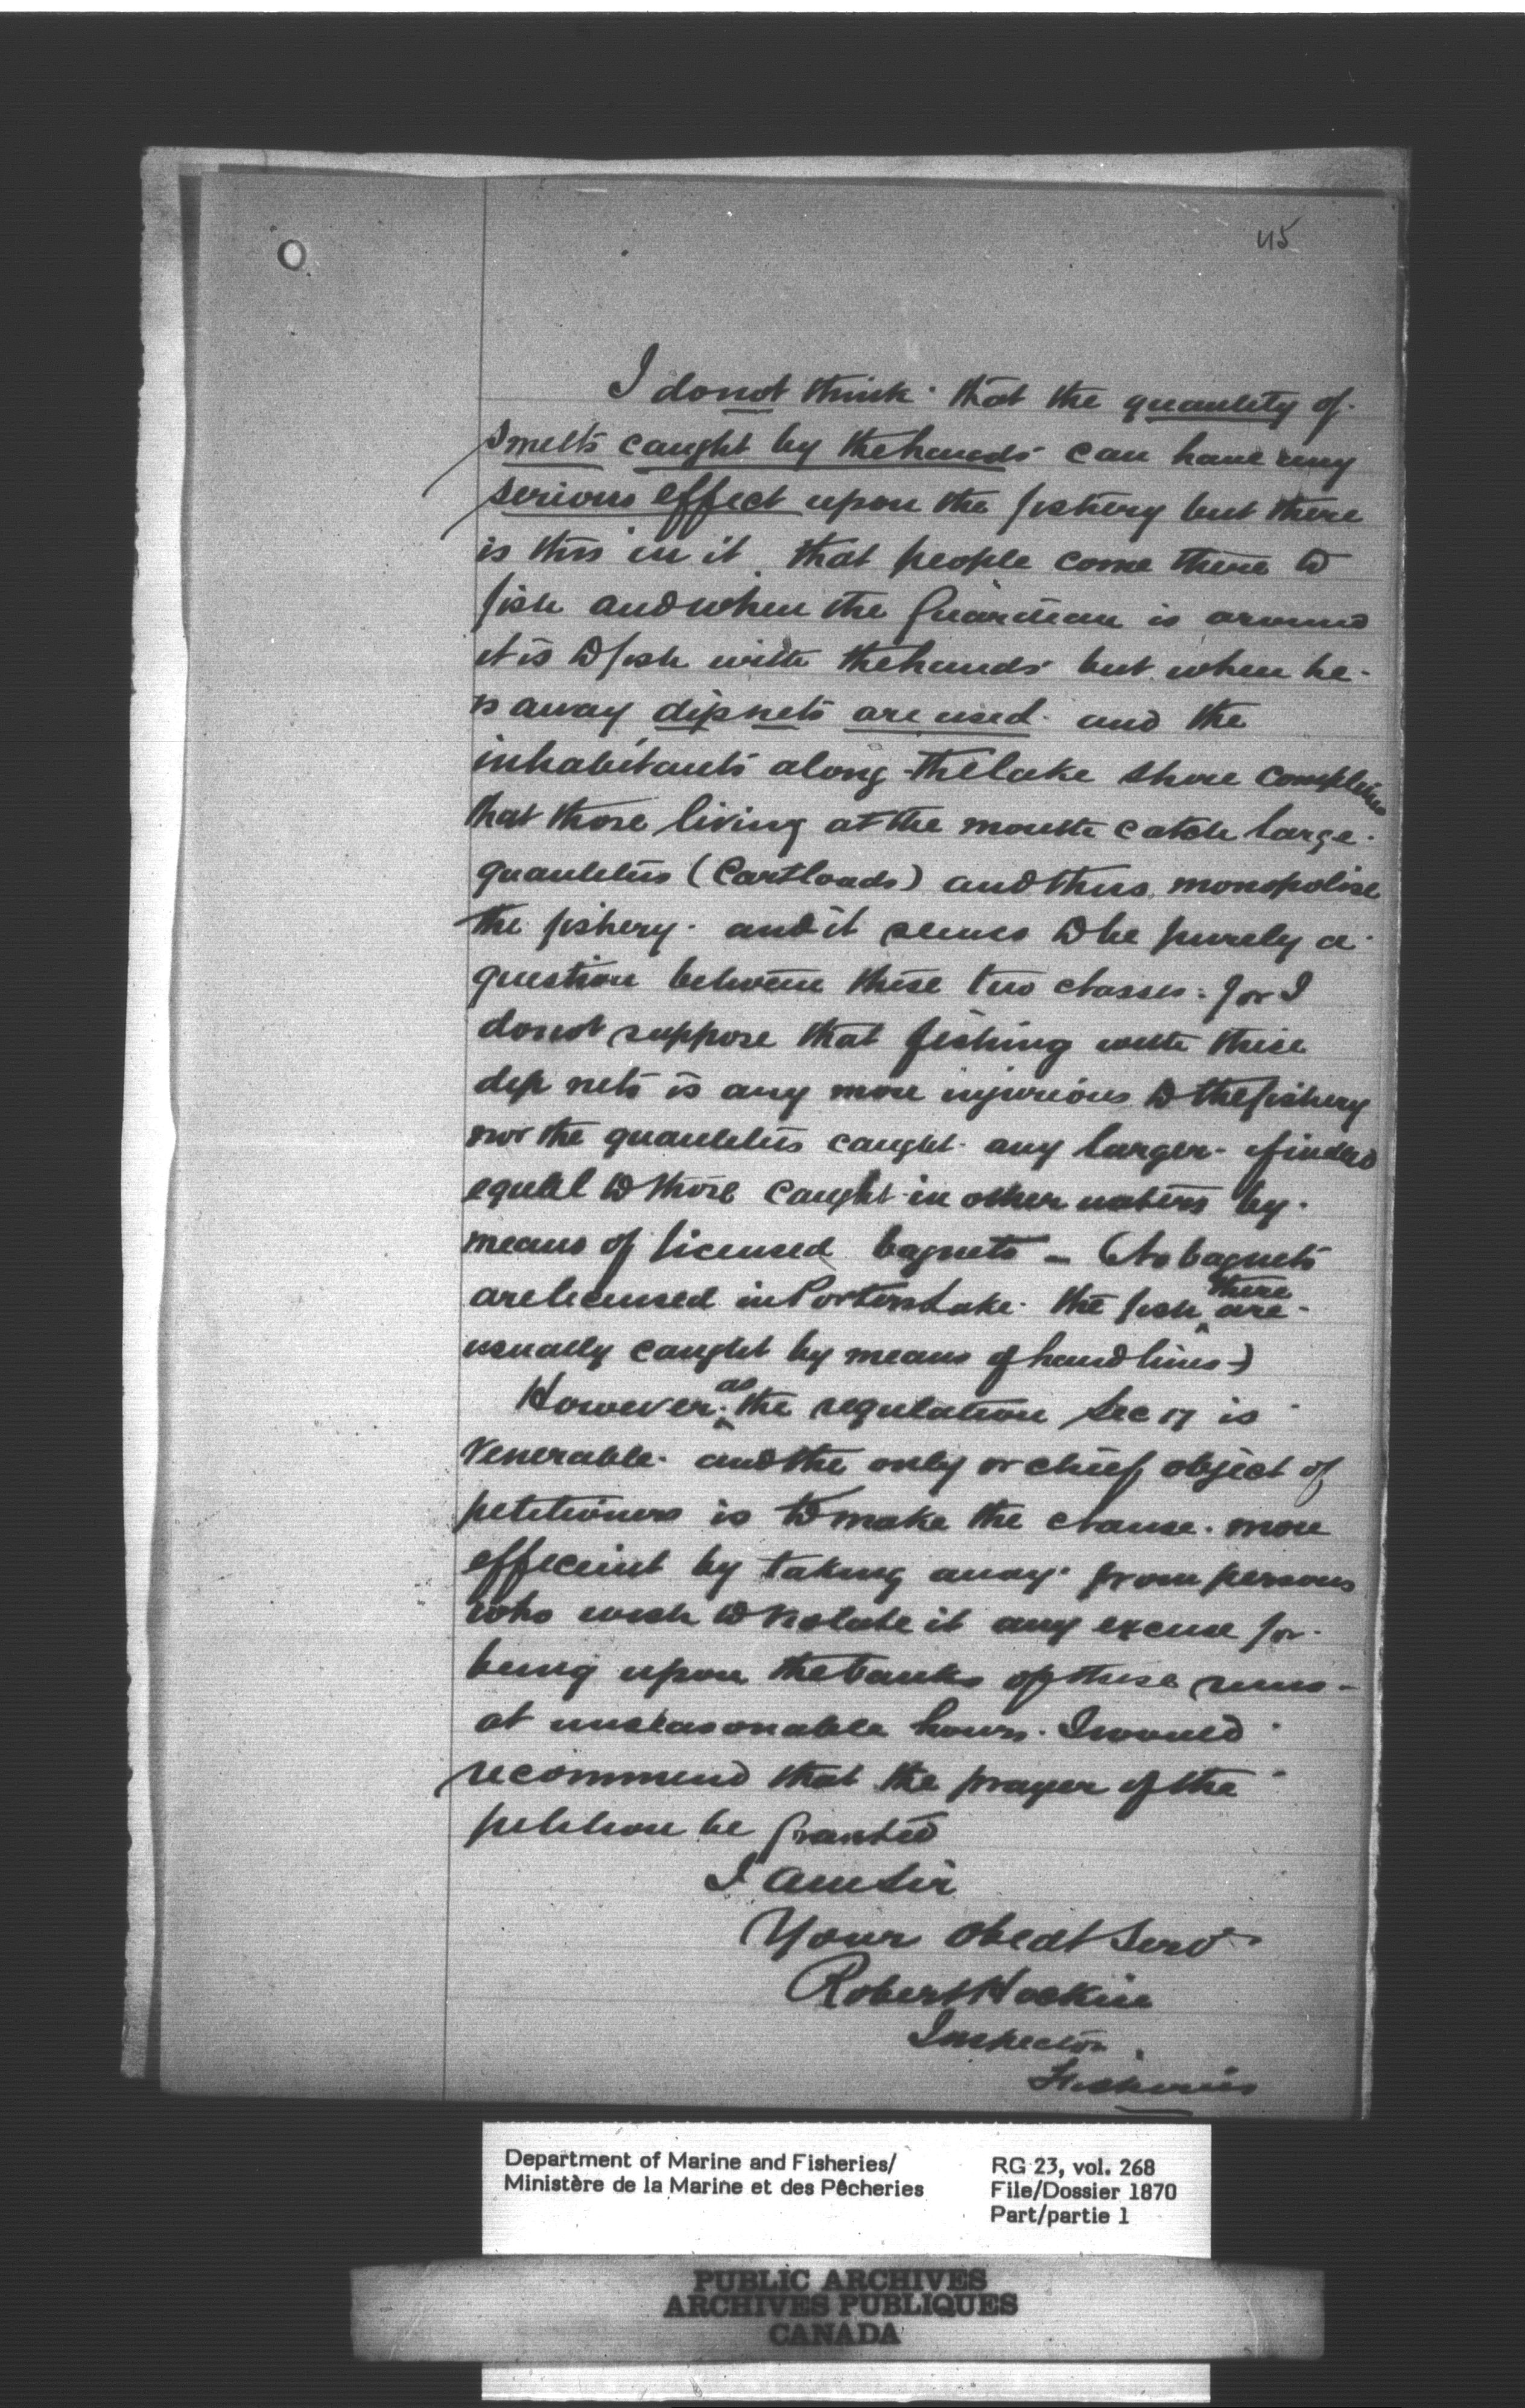 45
I do not think that the quantity of
smelts caught by the hands can have any
serious effect upon the fishery but there
is this in it that people come there to
fish and when the Guardian is around
it is to fish with the hands but when he
is away dip nets are used and the
inhabitants along the lake shore complain
that those living at the mouth catch large
quantities (Cartloads) and thus monopolise
the fishery and it seems to be purely a
question between these two classes. for I
do not suppose that fishing with these
dip nets is any more injurious to the fishery
nor the quantities caught any larger if indeed
equal to those caught in other waters by
means of licensed bagnets – (No bagnets
are licensed in Porters Lake the fish there are
usually caught by means of hand lines)
However as the regulation Sec 17 is
venerable and the only or chief object of
petitioners is to make the clause more
efficeint by taking away from persons
who wish to violate it any excuse for
being upon the banks of these runs
at unseasonable hours. I would
recommend that the prayer of the
petition be granted
I am Sir
Your Obedt Servt
Robert Hockin
Inspector
Fisheries
Department of Marine and Fisheries/
Ministère de la Marine et des Pêcheries
RG 23, vol. 268
File/Dossier 1870
Part/partie 1
PUBLIC ARCHIVES
ARCHIVES PUBLIQUES
CANADA